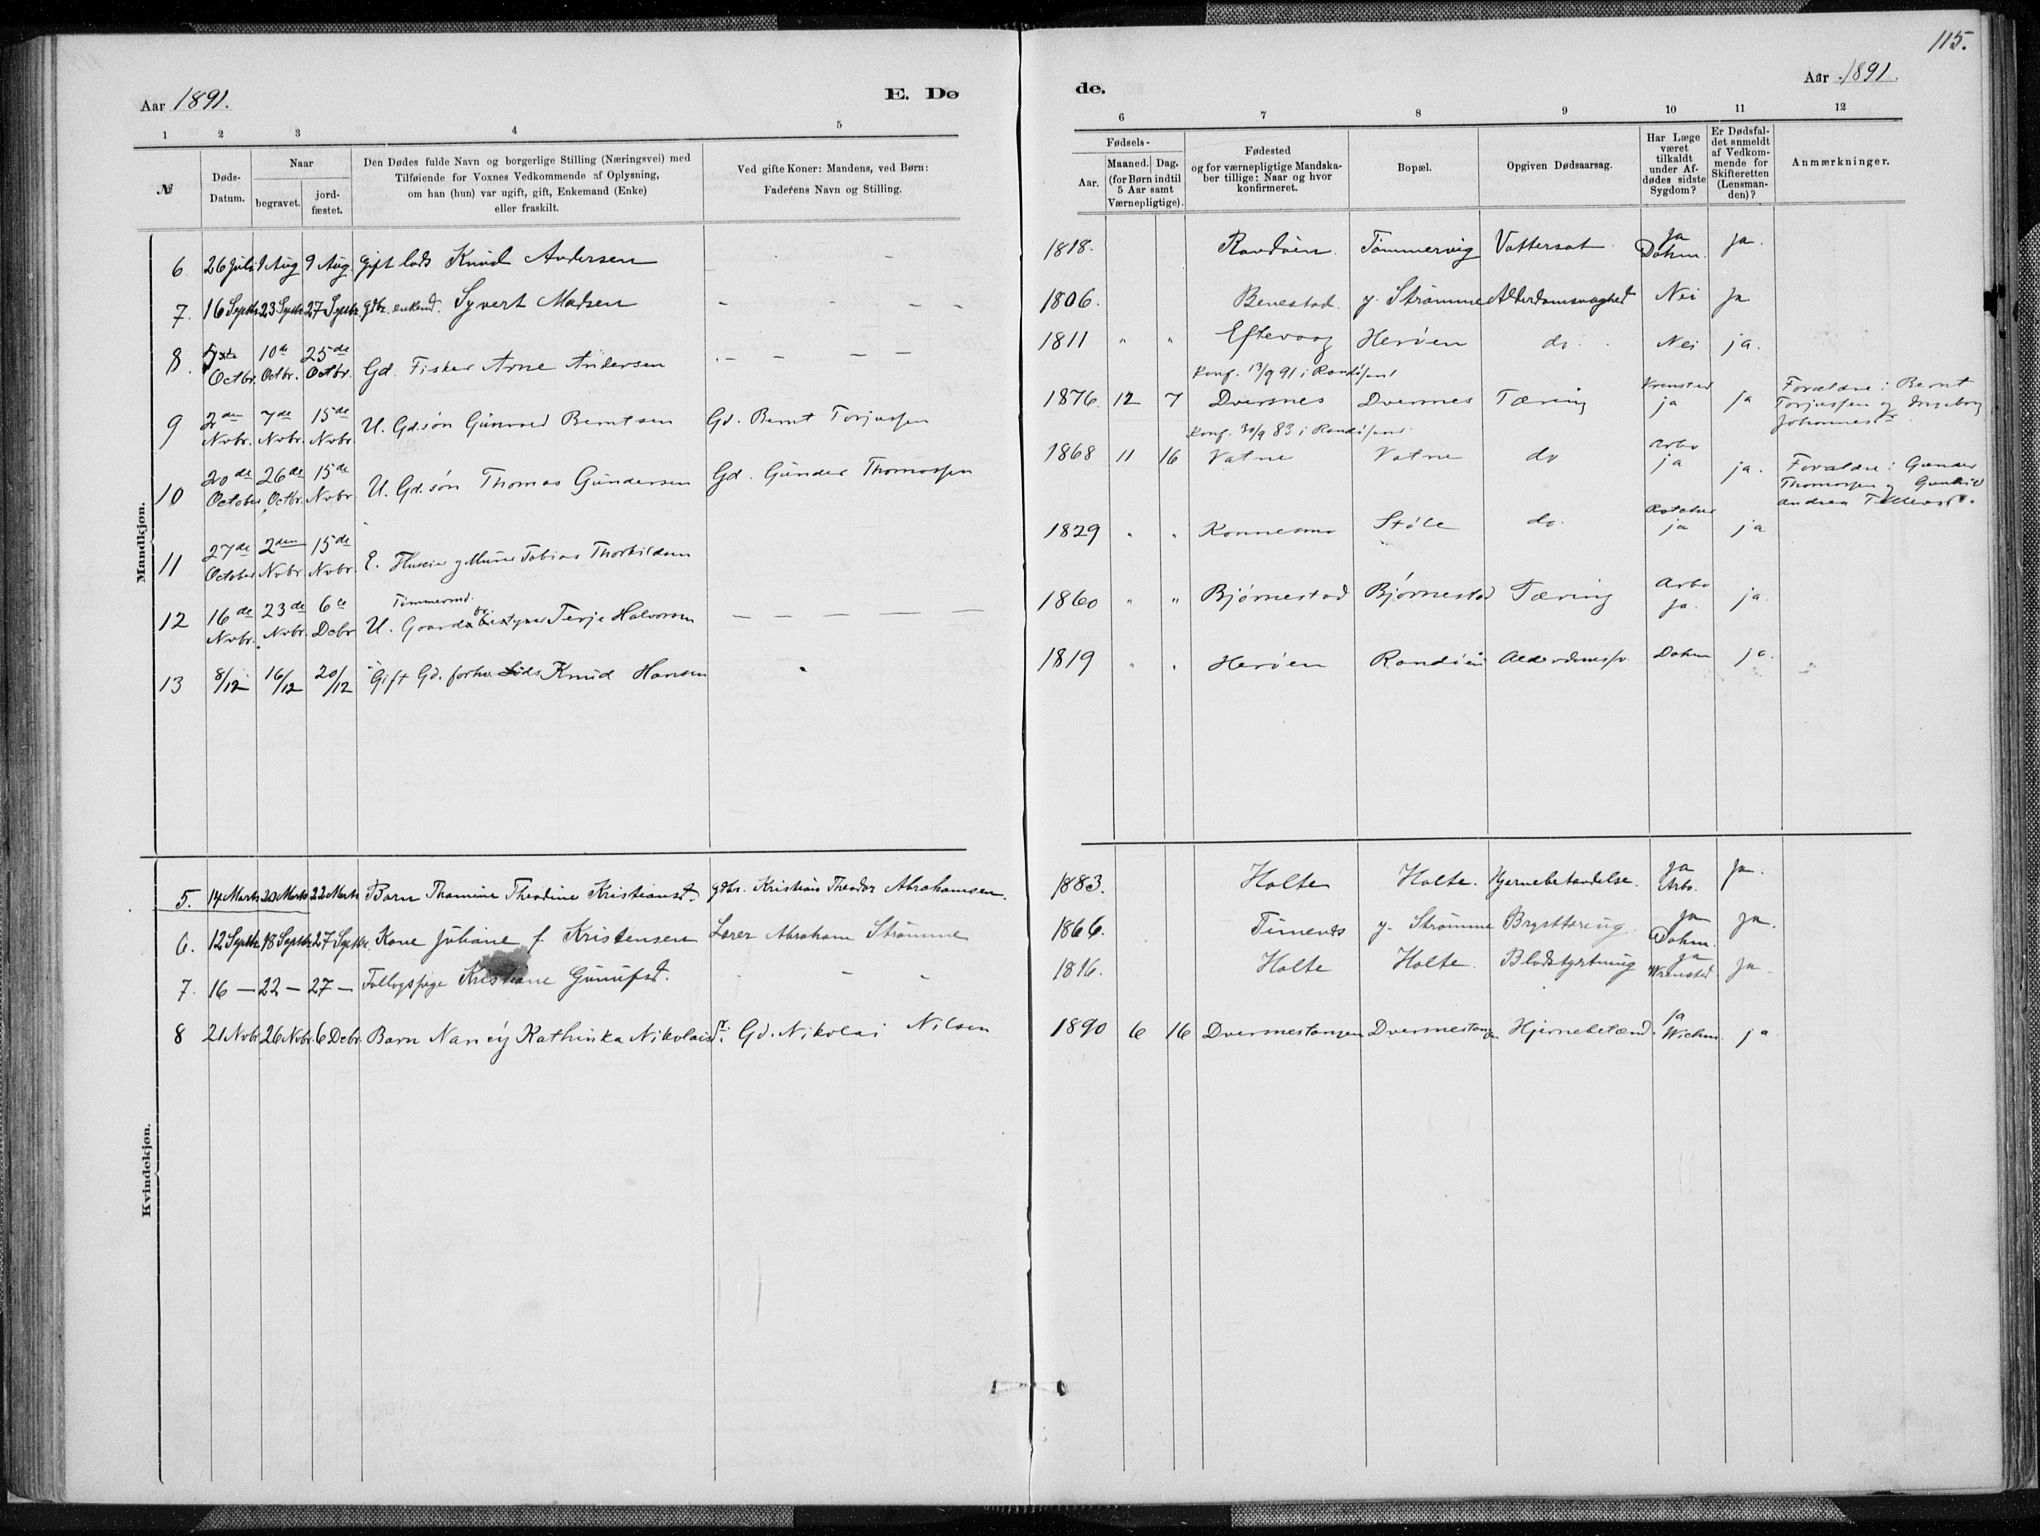 115.
Aar 1891.
E. Dø
de.
Aar 1891.
1 2 3 4 5
6 7 8 9 10 11 12
№
Døds-
Datum.
Naar
begravet.
jord-
fæstet.
Den Dødes fulde Navn og borgerlige Stilling (Næringsvei) med
Tilføiende for Voxnes Vedkommende af Oplysning,
om han (hun) var ugift, gift, Enkemand (Enke)
eller fraskilt.
Ved gifte Koner: Mandens, ved Børn:
Faderens Navn og Stilling.
Fødsels-
Aar.
Maaned. Dag.
(for Børn indtil
5 Aar samt
Værnepligtige).
Fødested
og for værnepligtige Mandska-
ber tillige: Naar og hvor
konfirmeret.
Bopæl.
Opgiven Dødsaarsag.
Har Læge
været
tilkaldt
under Af-
dødes sidste
Sygdom?
Er Dødsfal-
det anmeldt
af Vedkom-
mende for
Skifteretten
(Lensman-
den)?
Anmærkninger.
Mandkjøn.
6 26 Juli 1 Aug 9 Aug gift lods Knud Andersen - - - 1818. Randøen Tømmervig Vattersot ja Dahm. ja.
7. 16 Septbr 23 Septbr 27 Septbr. gdbr. enkemd. Syvert Madsen - - - - 1806. Benestad y. Strømme Alderdomssvaghed Nei ja
8. 10de Octbr. 25de Octbr. Gd. Fisker Arne Andersen - - - - 1811 " " Eftevaag Herøen do. Nei ja.
Konf. 13/9 91 i Randøsund
9 2den Nvbr. 7de Nvbr. 15de Nvbr. U. Gd.søn Gunvald Berntsen Gd. Bernt Torjussen 1876 12 7 Dversnes Dversnes Tæring Wrensted ja ja Forældre: Bernt
Torjussen og Ingeborg
Johannesdr.
Konf. 30/9 83 i Randøsund.
10 20de October 26de Octbr. 15de Nvbr. U. Gd.søn Thomas Gundersen Gd. Gunder Thomassen 1868 11 16 Vatne Vatne do Arbo ja ja. Forældre: Gunder
Thomassen og Gunhild
Andrea
11 27de October 2den Nvbr. 15de Nvbr. E. Huseier og Murer Tobias Thorkildsen 1829 " " Konnesmo Støle do. ja ja
Tømmermd.
12 16de Nvbr. 23de Nvbr. 6te Debr. U. Gaardbestyrer Terje Halvorsen - - - - 1860 " " Bjørnestad Bjørnestad Tæring Arbo Ja. ja.
13 8/12 16/12 20/12 Gift Gd. forhv. Lods Knud Hansen 1819 " " Herøen Randøen Alderdomssv. Dahm ja.
Kvindekjøn.
5. 14 Marts 20 Marts 22 Marts Barn Thomine Theodine Kristiansd. gdbr. Kristian Theodor Abrahamsen. 1883. Holte Holte. Hjernebetændelse. ja Arbo. ja.
6. 12 Septbr 18 Septbr 27 Septbr. Kone Juliane f. Kristensen Lærer Abraham Strømme 1866. Timenes y. Strømme Brysttæring. ja Dahm. ja.
7. 16 — 22 — 27 — Fattiglægs pige Kristiane Gunufsd. " " " 1816. Holte Holte. Blodstyrtning ja Wrensted ja.
8 21 Nvbr. 26 Nvbr. 6 Debr. Barn Nancy Kathinka Nikolaisdr. Gd. Nikolai Nilsen 1890 6 16 Dversnestangen Dversnestangen Hjernebetænd. ja Wichm. ja.